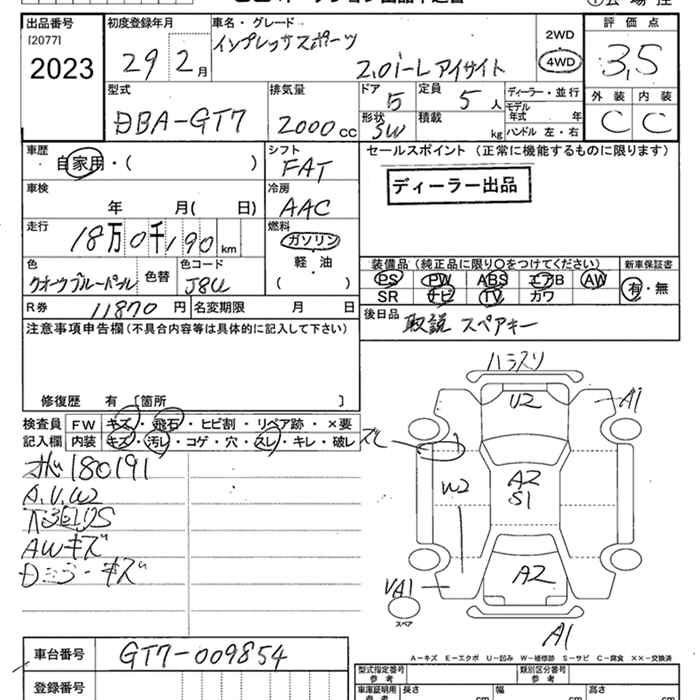 出品番号 初度登録年月 車名・グレード 評価点
[2077]
2023
29 2月
インプレッサスポーツ
2.0i-L アイサイト
2WD
4WD
3.5
型式 排気量 ドア 定員 ディーラー・並行 外装 内装
DBA-GT7 2000cc 5 5人
モデル年式 年
形状 積載 kg ハンドル 左・右
SW
C C
車歴 シフト セールスポイント(正常に機能するものに限ります)
自家用・( ) FAT
ディーラー出品
車検 冷房
年 月( 日) AAC
走行 燃料
18万0千190km ガソリン
軽・油
( )
色 色替 色コード
クオーツブルーパール J8U
装備品(純正品に限り○をつけてください) 新車保証書
PS PW ABS エアB AW
SR ナビ TV カワ
有・無
R券 11870円 名変期限 月 日
後日品 取説 スペアキー
注意事項申告欄(不具合内容等は具体的に記入して下さい)
修復歴 有 [箇所 ]
検査員 FW キズ・飛石・ヒビ割・リペア跡・×要
記入欄 内装 キズ・汚レ・コゲ・穴・スレ・キレ・破レ
180191
A.U.W
AWキズ
ドラーキズ
ハラスリ
U2
A1
スレ
W2
A2
S1
A2
A1
スペア
A1
A-キズ E-エクボ U-凹み W-補修跡 S-サビ C-腐食 ××-交換済
車台番号 GT7-009854
登録番号
型式指定番号 参考 類別区分番号 参考
車庫証明用 参考 長さ cm 幅 cm 高さ cm